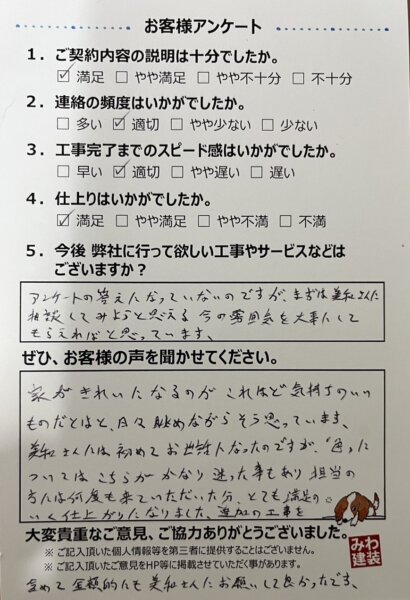 お客様アンケート
1．ご契約内容の説明は十分でしたか。
☑ 満足 □ やや満足 □ やや不十分 □ 不十分
2．連絡の頻度はいかがでしたか。
□ 多い ☑ 適切 □ やや少ない □ 少ない
3．工事完了までのスピード感はいかがでしたか。
□ 早い ☑ 適切 □ やや遅い □ 遅い
4．仕上りはいかがでしたか。
☑ 満足 □ やや満足 □ やや不満 □ 不満
5．今後 弊社に行って欲しい工事やサービスなどは
ございますか？
アンケートの答えになっていないのですが、まずは美和さんに
相談してみようと思える 今の雰囲気を大事にして
もらえればと思っています。
ぜひ、お客様の声を聞かせてください。
家がきれいになるのが これほど気持ちのいい
ものだとはと、日々眺めながらそう思っています。
美和さんには初めてお世話になったのですが、"色"に
ついてはこちらが かなり迷った事もあり 担当の
方には何度も来ていただいた分、とても満足の
いく仕上がりになりました。追加の工事を
大変貴重なご意見、ご協力ありがとうございました。
※ ご記入頂いた個人情報等を第三者に提供することはございません。
※ ご記入頂いたご意見をHP等に掲載させていただく事があります。
みわ
建装
含めて 金額的にも 美和さんにお願いして良かったです。